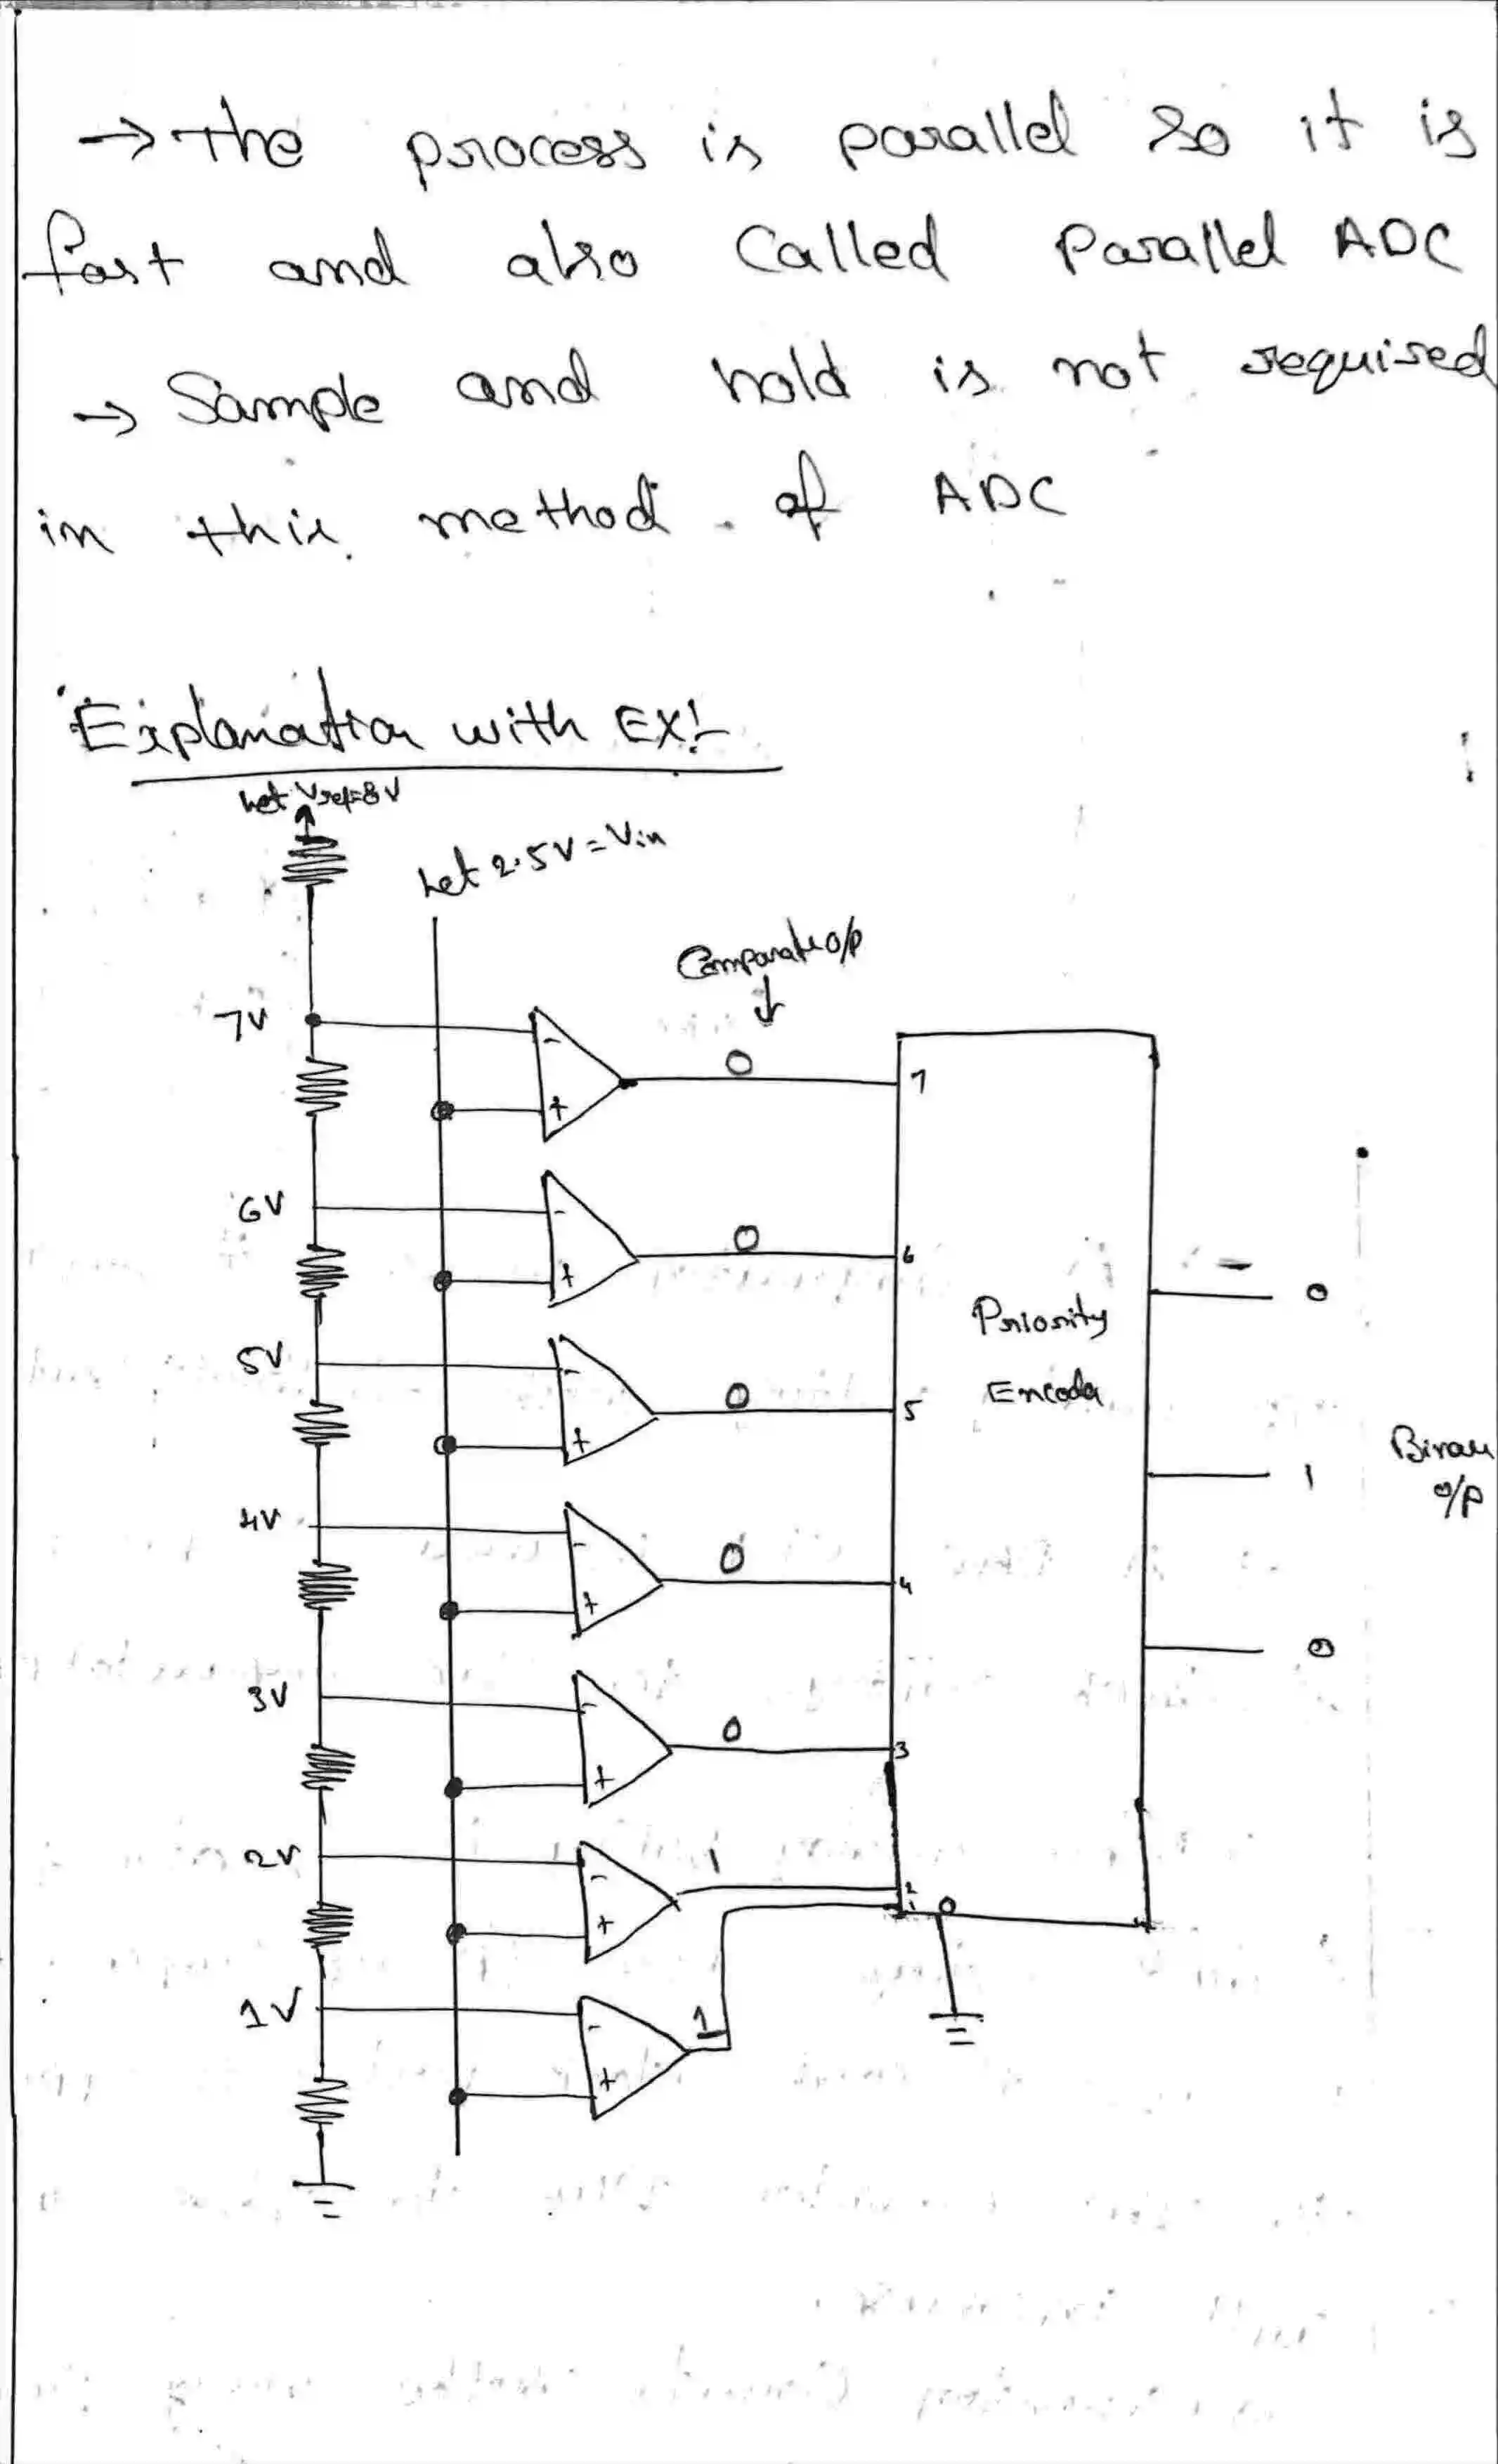 → The process is parallel so it is
fast and also Called Parallel ADC
→ Sample and hold is not required
in this method of ADC
Explanation with EX:-
Let Vref=8V
Let 2.5V = Vin
Comparator o/p
7V
-
+
0
7
6V
-
+
0
6
0
Priority
Encoder
5V
-
+
0
5
1
Binary
o/p
4V
-
+
0
4
0
3V
-
+
0
3
2V
-
+
1
2
1
0
1V
-
+
1